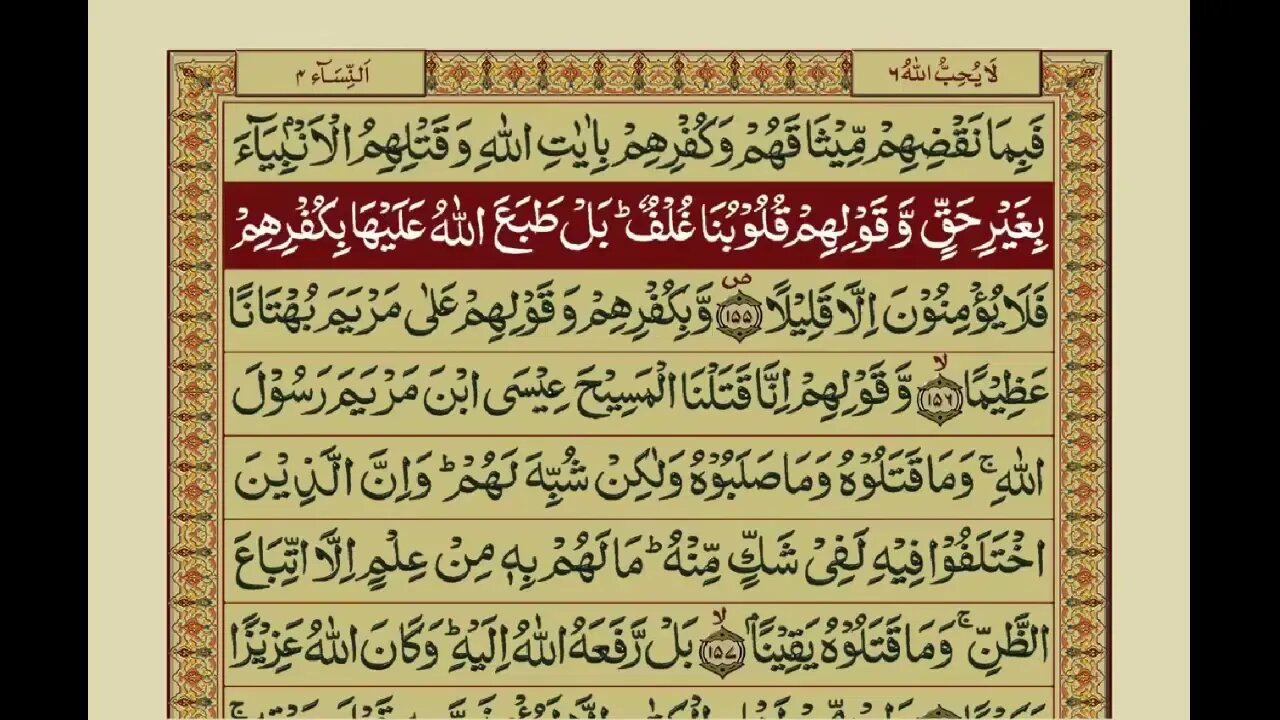 لَا يُحِبُّ اللّٰهُ ٦
اَلنِّسَآء ٤
فَبِمَا نَقْضِهِمْ مِّيْثَاقَهُمْ وَكُفْرِهِمْ بِاٰيٰتِ اللّٰهِ وَقَتْلِهِمُ الْاَنْۢبِيَآءَ
بِغَيْرِ حَقٍّ وَّقَوْلِهِمْ قُلُوْبُنَا غُلْفٌ ؕ بَلْ طَبَعَ اللّٰهُ عَلَيْهَا بِكُفْرِهِمْ
فَلَا يُؤْمِنُوْنَ اِلَّا قَلِيْلًا ۪﴿۱۵۵﴾ وَّبِكُفْرِهِمْ وَقَوْلِهِمْ عَلٰى مَرْيَمَ بُهْتَانًا
عَظِيْمًا ۙ﴿۱۵۶﴾ وَّقَوْلِهِمْ اِنَّا قَتَلْنَا الْمَسِيْحَ عِيْسَى ابْنَ مَرْيَمَ رَسُوْلَ
اللّٰهِ ۚ وَمَا قَتَلُوْهُ وَمَا صَلَبُوْهُ وَلٰكِنْ شُبِّهَ لَهُمْ ؕ وَاِنَّ الَّذِيْنَ
اخْتَلَفُوْا فِيْهِ لَفِيْ شَكٍّ مِّنْهُ ؕ مَا لَهُمْ بِهٖ مِنْ عِلْمٍ اِلَّا اتِّبَاعَ
الظَّنِّ ۚ وَمَا قَتَلُوْهُ يَقِيْنًۢا ۙ﴿۱۵۷﴾ بَلْ رَّفَعَهُ اللّٰهُ اِلَيْهِ ؕ وَكَانَ اللّٰهُ عَزِيْزًا